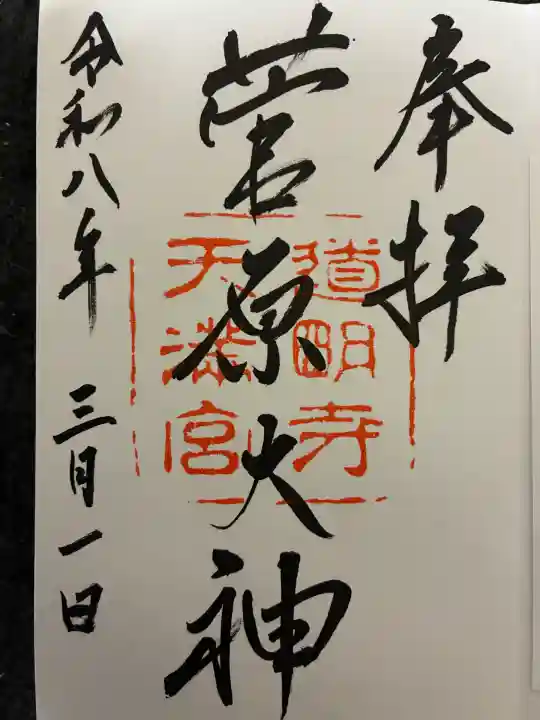 奉拝
菅原大神
道明寺
天満宮
令和八年 三月一日